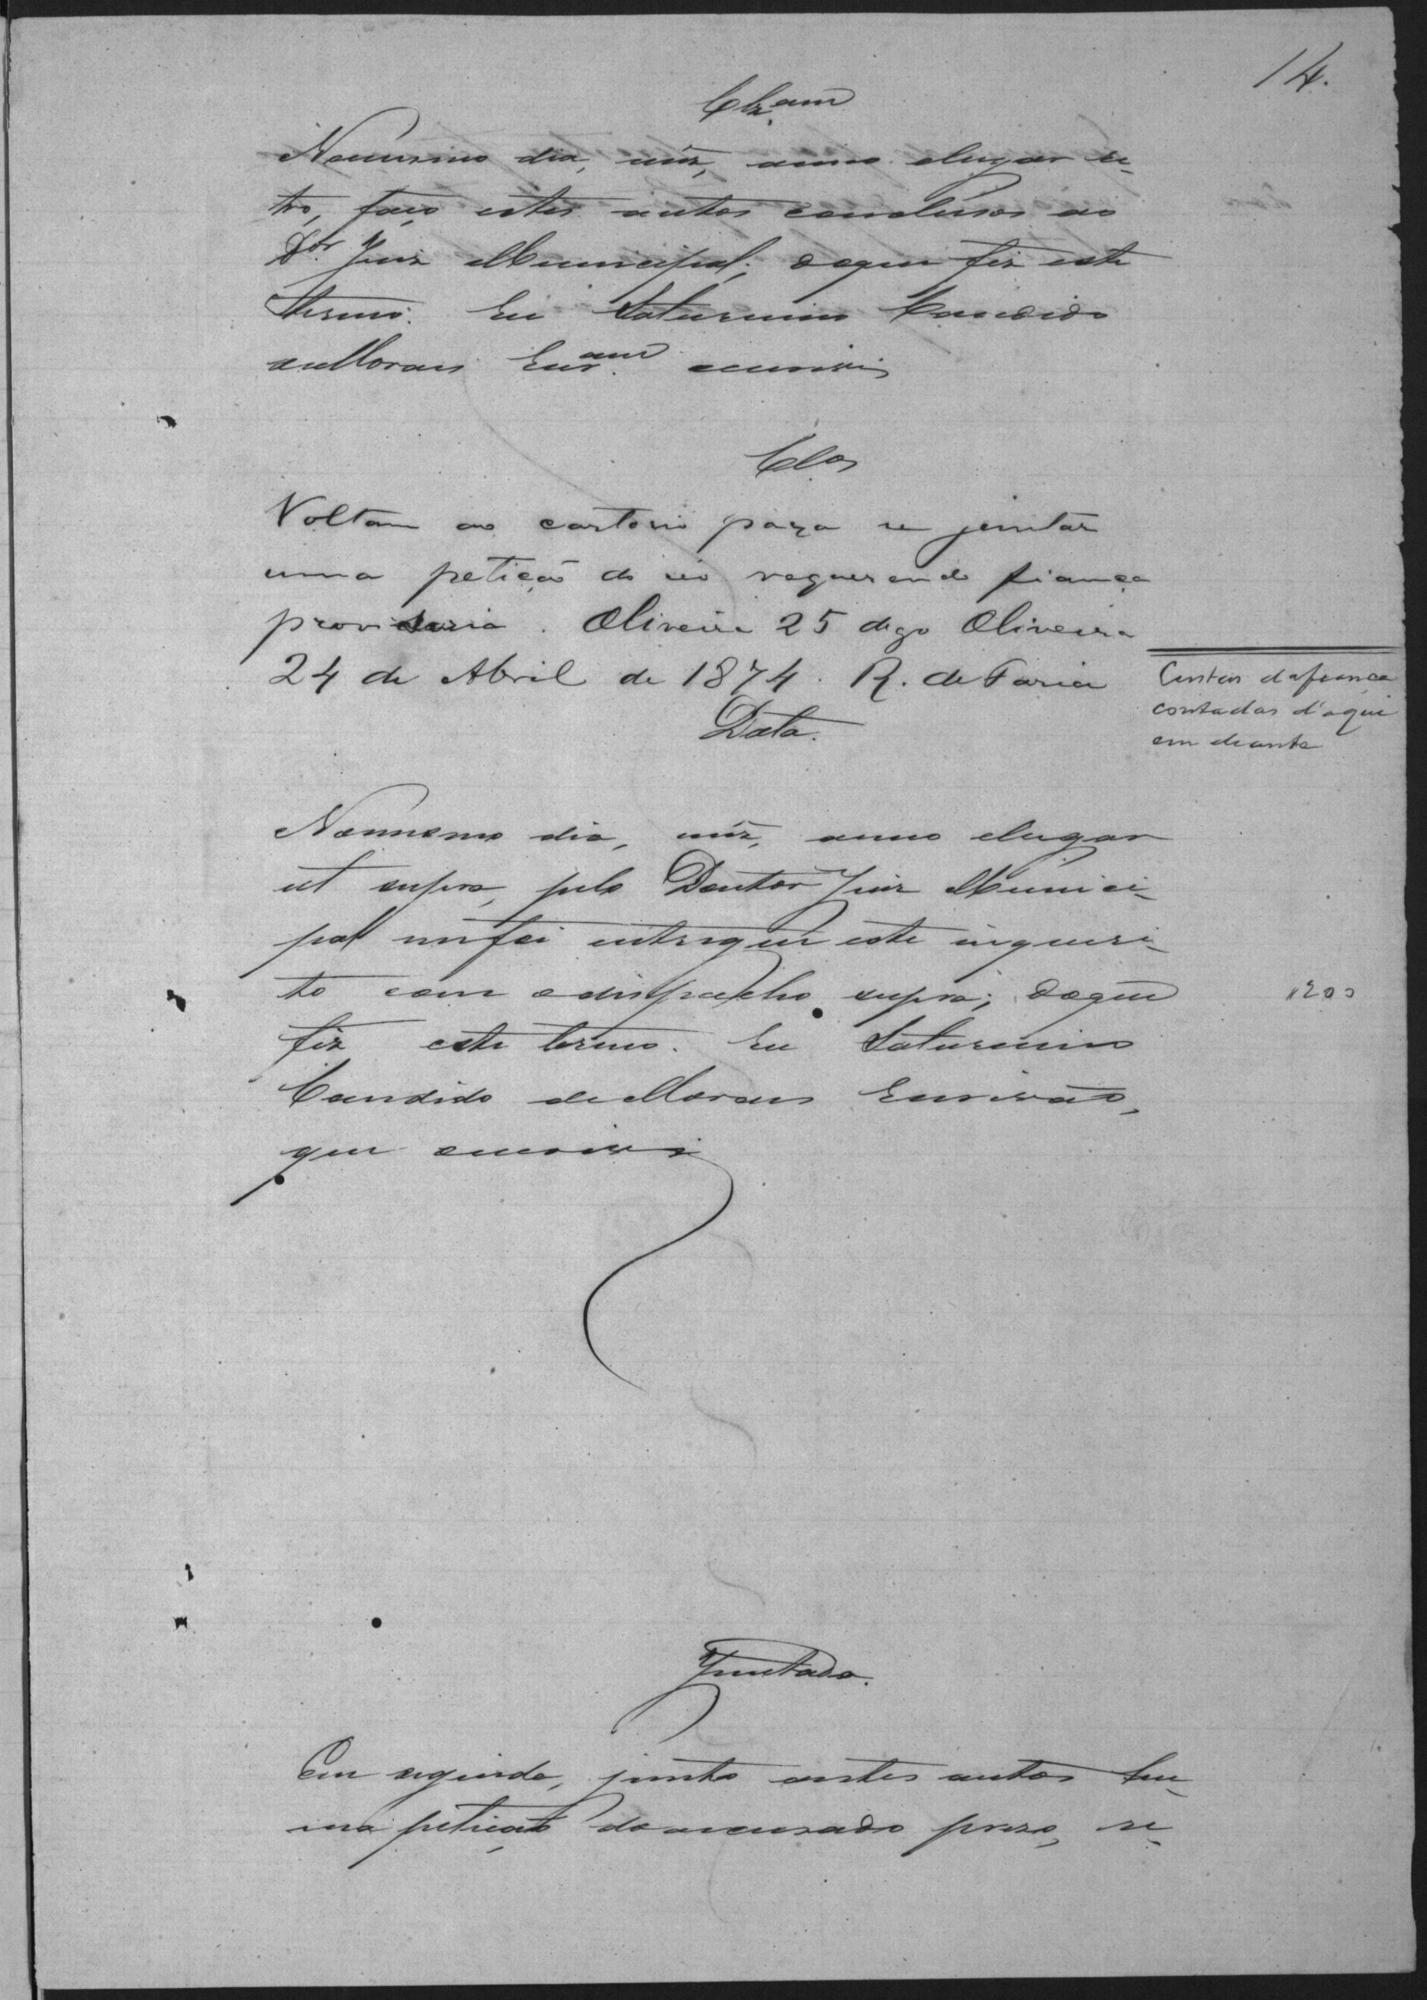 14.
Clz.am
No mesmo dia, mez, anno elugar re-
tro, faço estes autos conclusos ao
Dor Juiz Municipal; doque fiz este
termo. Eu Saturnino Candido
de Moraes Escr.am escrevi
Clos
Voltam ao cartorio para se juntar
uma petição do réo requerendo fiança
provisoria. Oliveira 25 digo Oliveira
24 de Abril de 1874. R. de Faria
Custas da fiança
contadas d'aqui
em diante
Data.
No mesmo dia, mez, anno elugar
ut supra, pelo Doutor Juiz Munici-
pal me foi entregue este inqueri-
to com o dispacho supra; doque
fiz este termo. Eu Saturnino
Candido de Moraes Escrivão,
que escrevi
"200
Juntada.
Em seguida, junto a estes autos hu-
ma petição do accusado prezo, se-